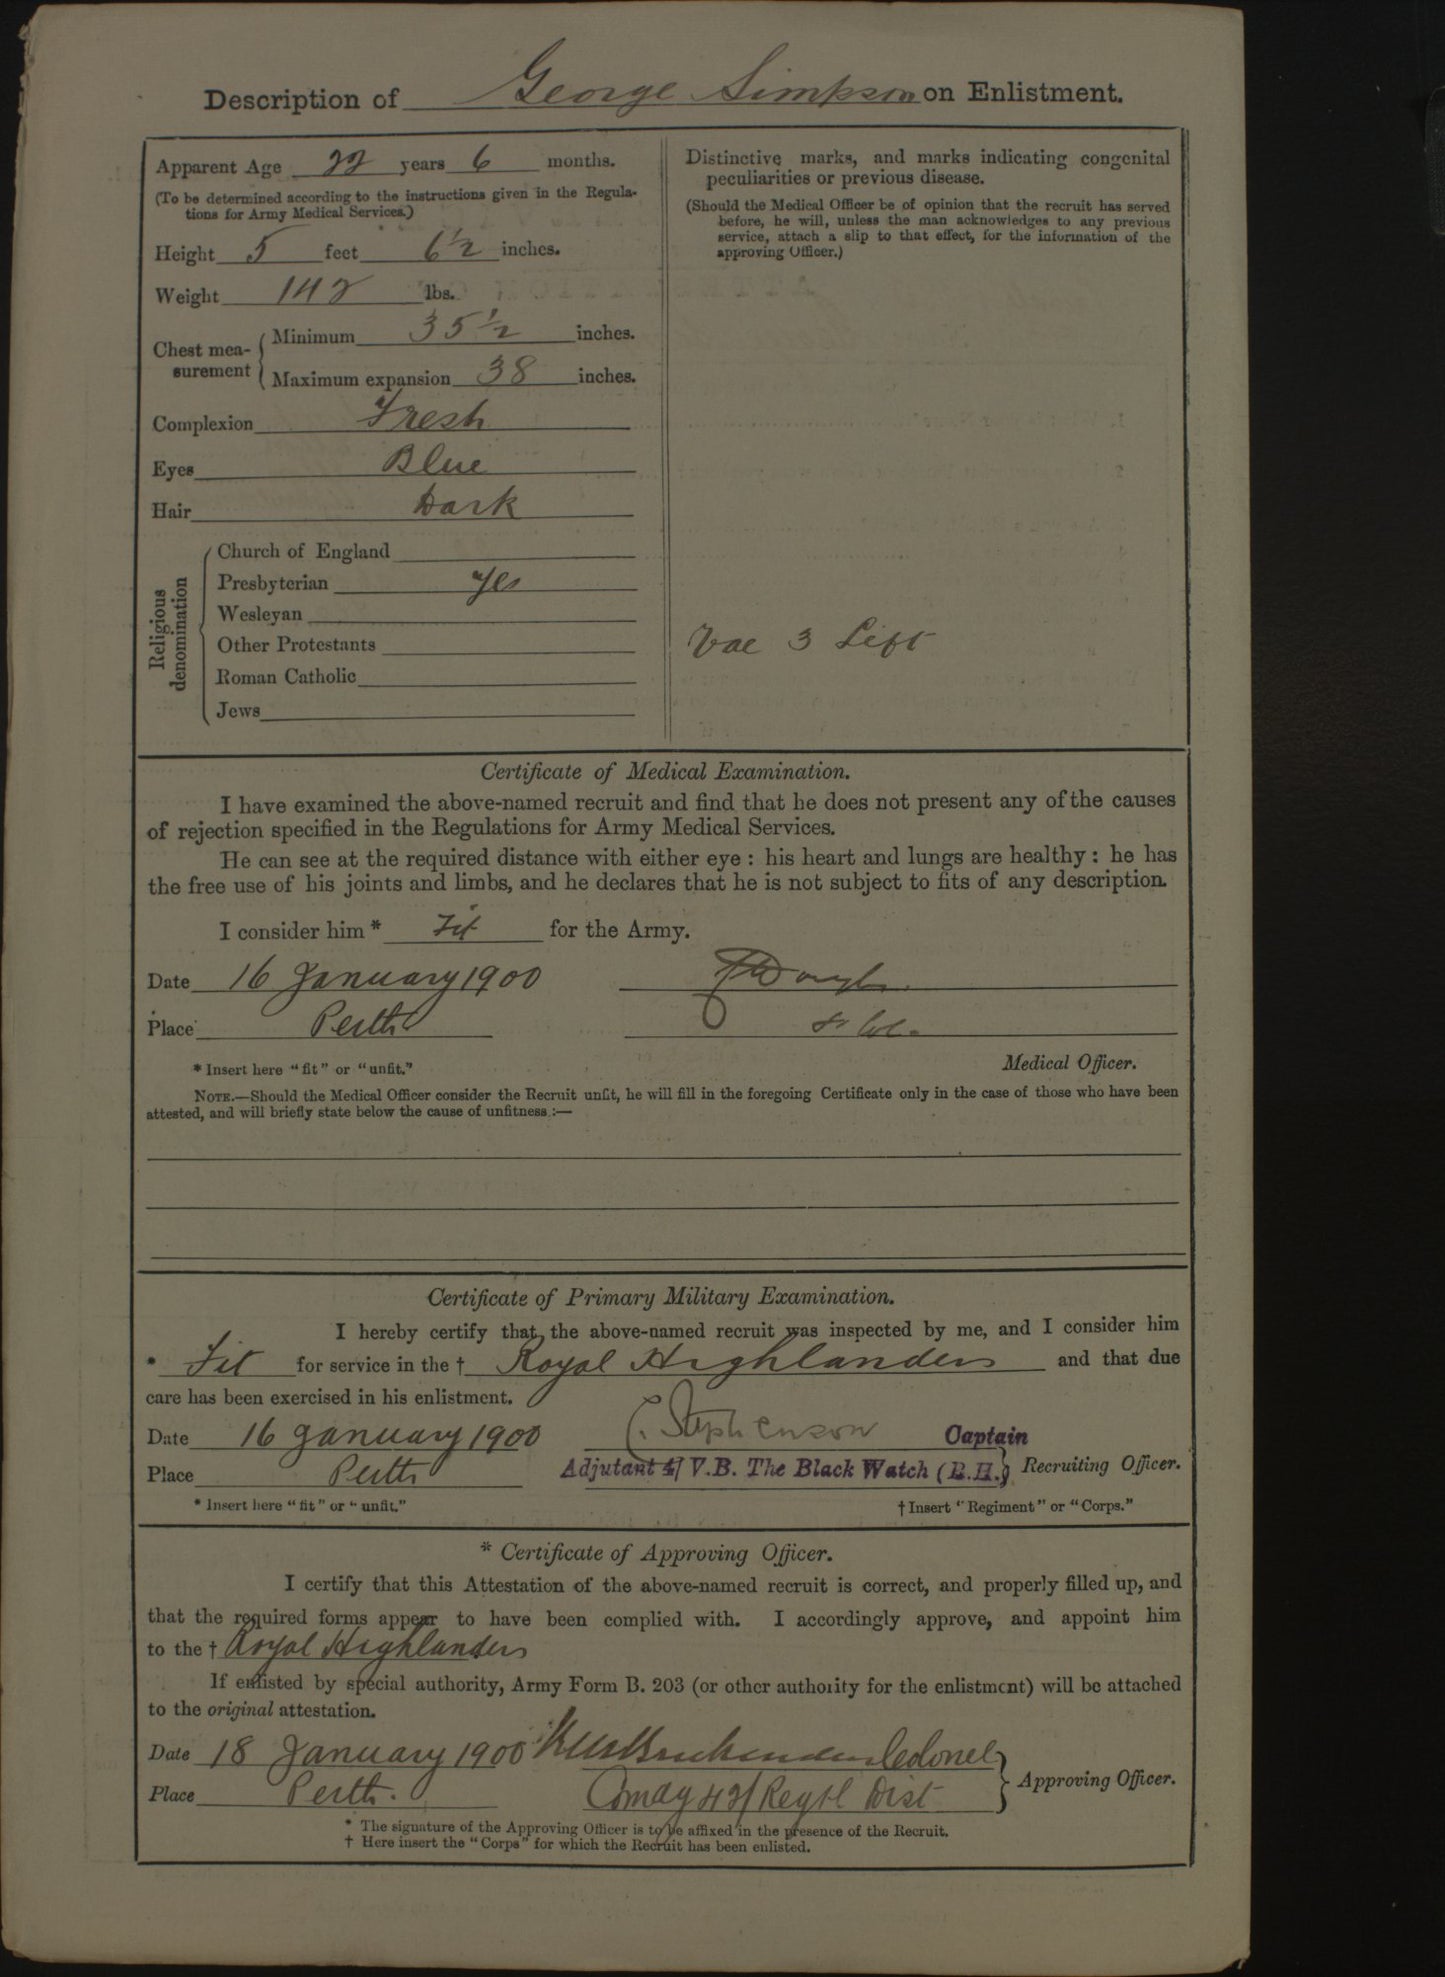 Description of George Simpson on Enlistment.
Apparent Age 22 years 6 months.
(To be determined according to the instructions given in the Regula-
tions for Army Medical Services.)
Height 5 feet 6½ inches.
Weight 142 lbs.
Chest mea-
surement
Minimum 35½ inches.
Maximum expansion 38 inches.
Complexion Fresh
Eyes Blue
Hair Dark
Religious
denomination
Church of England
Presbyterian Yes
Wesleyan
Other Protestants
Roman Catholic
Jews
Distinctive marks, and marks indicating congenital
peculiarities or previous disease.
(Should the Medical Officer be of opinion that the recruit has served
before, he will, unless the man acknowledges to any previous
service, attach a slip to that effect, for the information of the
approving Officer.)
Vac 3 Left
Certificate of Medical Examination.
I have examined the above-named recruit and find that he does not present any of the causes
of rejection specified in the Regulations for Army Medical Services.
He can see at the required distance with either eye : his heart and lungs are healthy : he has
the free use of his joints and limbs, and he declares that he is not subject to fits of any description.
I consider him * Fit for the Army.
Date 16 January 1900
Place Perth
Medical Officer.
* Insert here "fit" or "unfit."
NOTE.—Should the Medical Officer consider the Recruit unfit, he will fill in the foregoing Certificate only in the case of those who have been
attested, and will briefly state below the cause of unfitness :—
Certificate of Primary Military Examination.
I hereby certify that the above-named recruit was inspected by me, and I consider him
* Fit for service in the † Royal Highlanders and that due
care has been exercised in his enlistment.
Date 16 January 1900 C. Stephenson Captain
Place Perth Adjutant 4/ V.B. The Black Watch (R.H.) Recruiting Officer.
* Insert here "fit" or "unfit."
† Insert "Regiment" or "Corps."
* Certificate of Approving Officer.
I certify that this Attestation of the above-named recruit is correct, and properly filled up, and
that the required forms appear to have been complied with. I accordingly approve, and appoint him
to the † Royal Highlanders
If enlisted by special authority, Army Form B. 203 (or other authority for the enlistment) will be attached
to the original attestation.
Date 18 January 1900 Colonel
Place Perth. Comdg 42/ Regtl Dist Approving Officer.
* The signature of the Approving Officer is to be affixed in the presence of the Recruit.
† Here insert the "Corps" for which the Recruit has been enlisted.